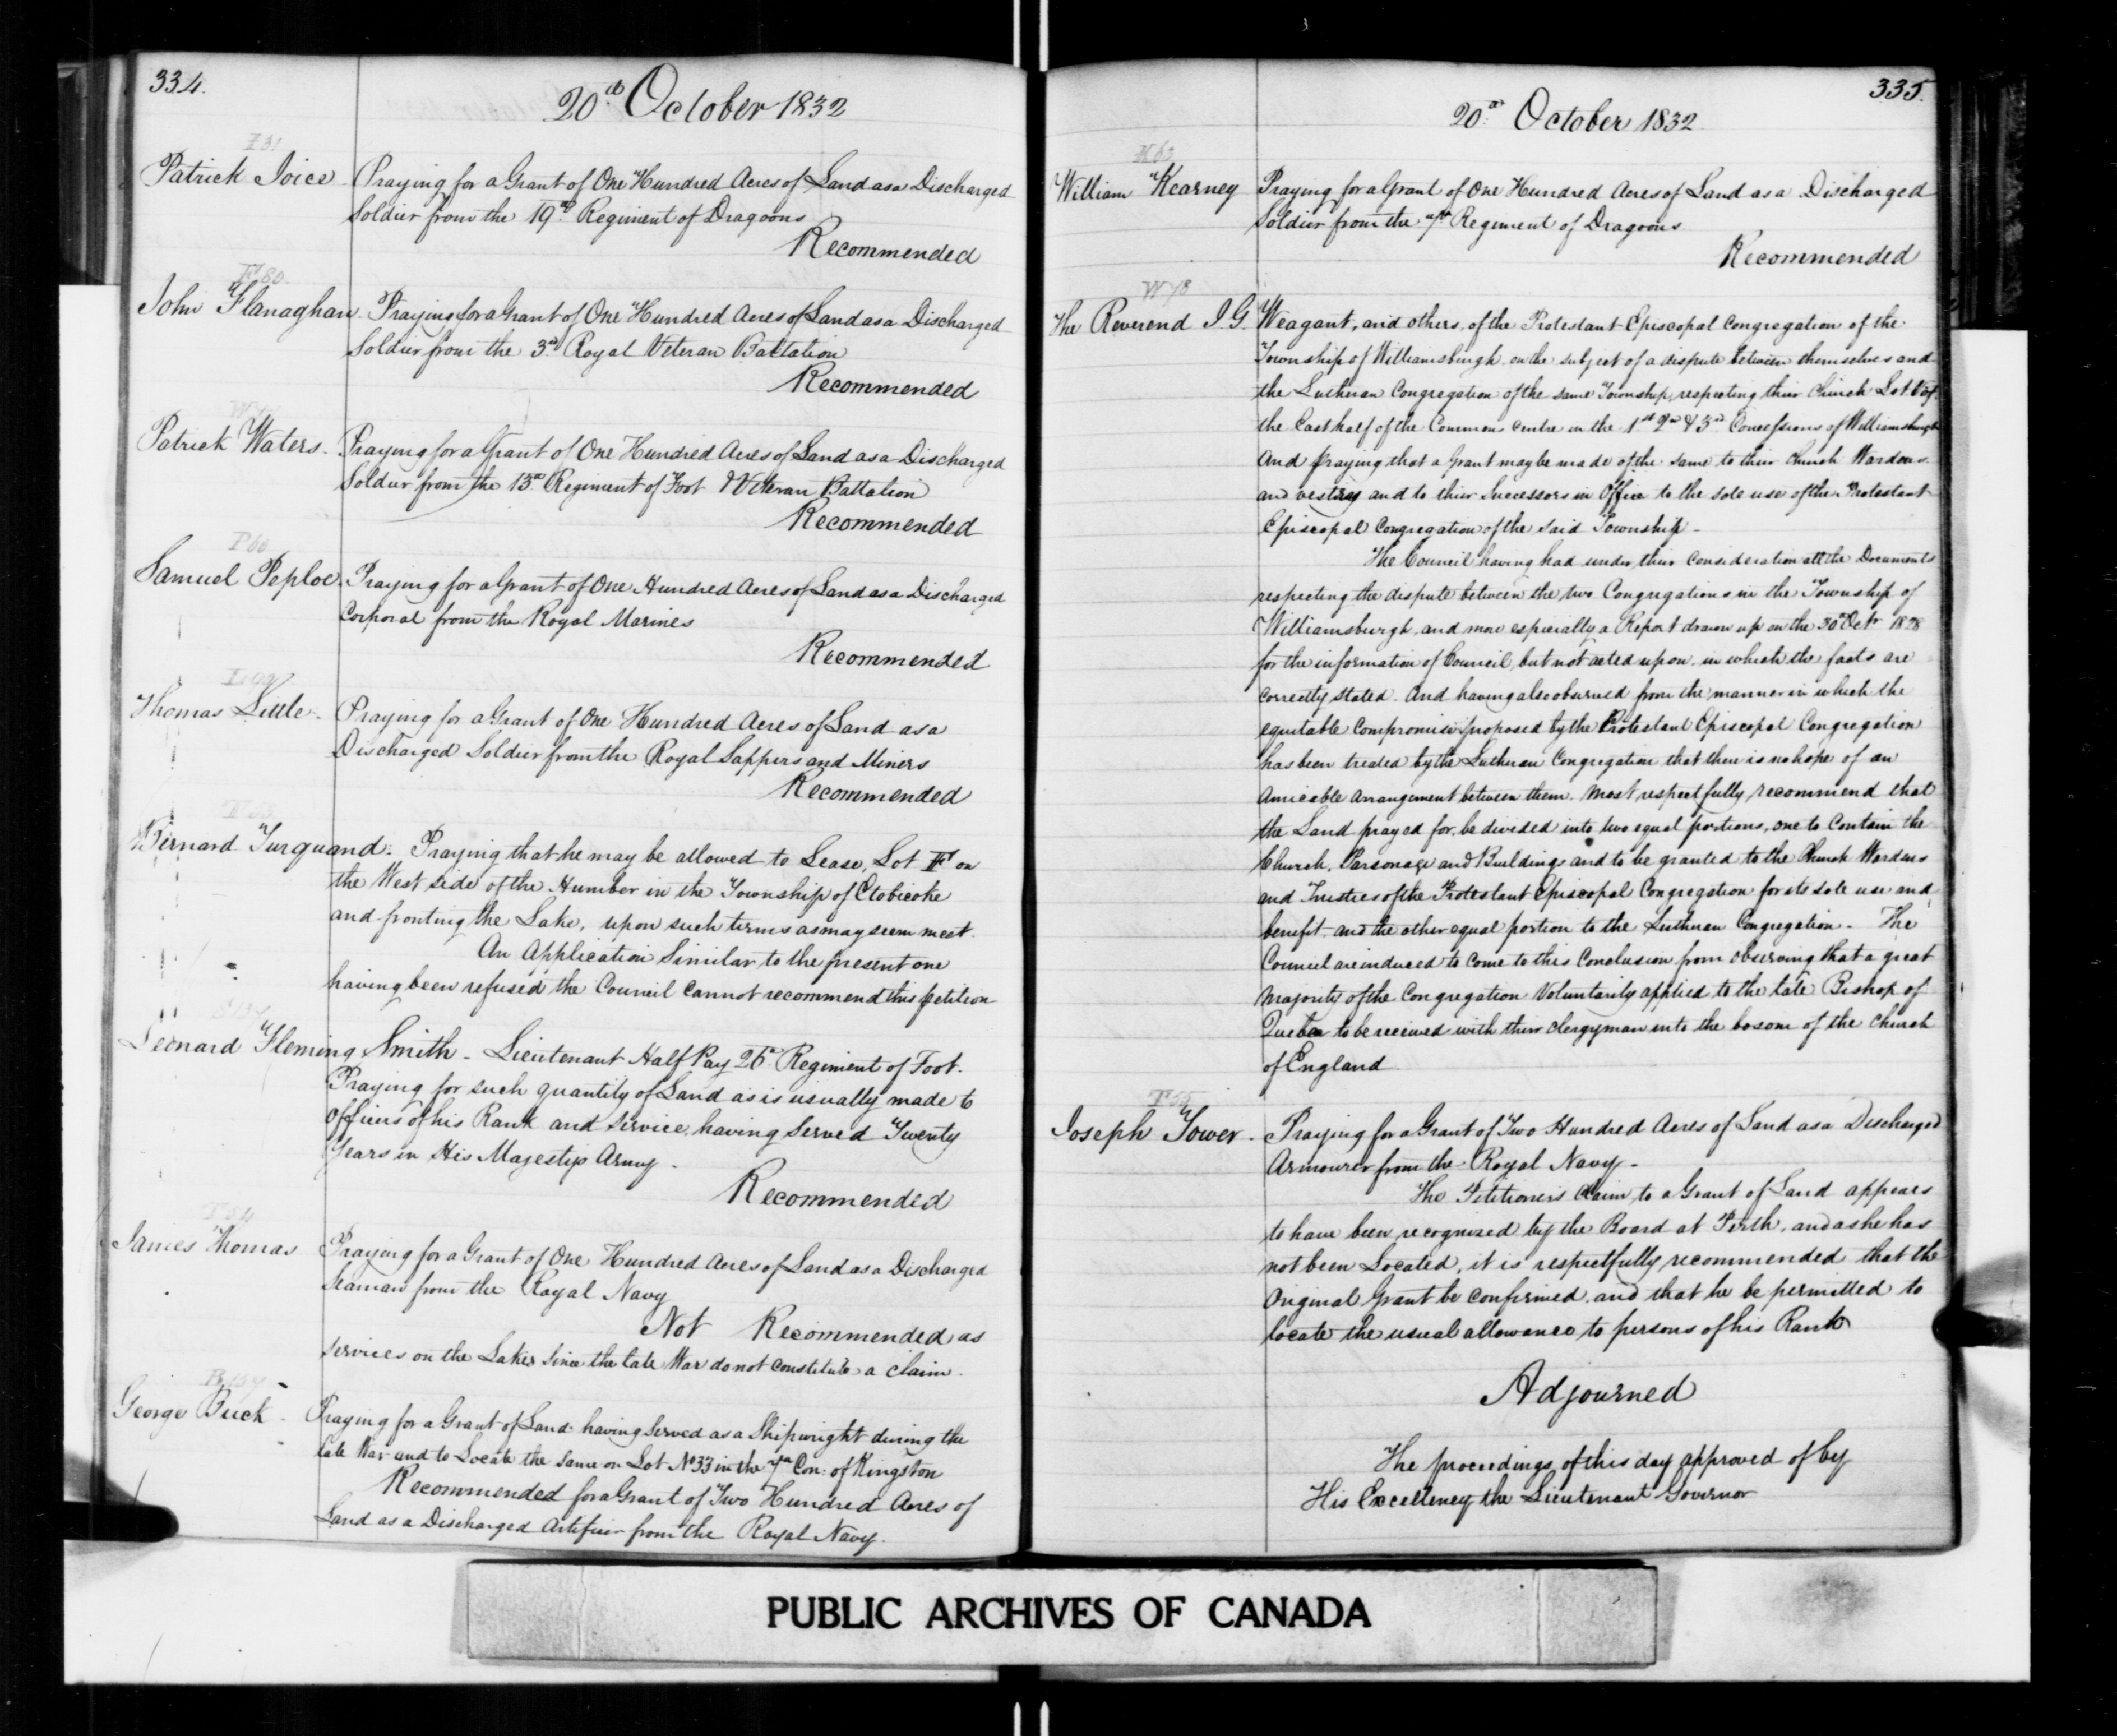 334.
20th October 1832
Patrick Joice - Praying for a Grant of One Hundred Acres of Land as a Discharged
Soldier from the 19th Regiment of Dragoons
Recommended
F 80
John Flanaghan - Praying for a Grant of One Hundred Acres of Land as a Discharged
Soldier from the 3rd Royal Veteran Battalion
Recommended
Patrick Waters - Praying for a Grant of One Hundred Acres of Land as a Discharged
Soldier from the 13th Regiment of Foot & Veteran Battalion
Recommended
P 66
Samuel Peploe. Praying for a Grant of One Hundred Acres of Land as a Discharged
Corporal from the Royal Marines
Recommended
Thomas Little - Praying for a Grant of One Hundred Acres of Land as a
Discharged Soldier from the Royal Sappers and Miners
Recommended
Bernard Turquand. Praying that he may be allowed to Lease, Lot F on
the West side of the Humber in the Township of Etobicoke
and fronting the Lake, upon such terms as may seem meet.
An Application Similar to the present one
having been refused the Council cannot recommend this petition
Leonard Fleming Smith - Lieutenant Half Pay 26th Regiment of Foot.
Praying for such quantity of Land as is usually made to
Officers of his Rank and Service, having Served Twenty
Years in His Majestys Army -
Recommended
T 54
James Thomas Praying for a Grant of One Hundred Acres of Land as a Discharged
Seaman from the Royal Navy
Not Recommended as
services on the Lakes since the late War do not constitute a claim.
George Buck - Praying for a Grant of Land having Served as a Shipwright during the
late War and to Locate the same on Lot No 33 in the 7th Con: of Kingston
Recommended for a Grant of Two Hundred Acres of
Land as a Discharged Artificer from the Royal Navy.
335.
20th October 1832
K 63
William Kearney Praying for a Grant of One Hundred Acres of Land as a Discharged
Soldier from the 7th Regiment of Dragoons
Recommended
W 78
The Reverend I. G. Weagant, and others, of the Protestant Episcopal Congregation of the
Township of Williamsburgh on the subject of a dispute between themselves and
the Lutheran Congregation of the same Township, respecting their Church Lot Viz:
the East half of the Commons centre in the 1st 2nd & 3rd Concessions of Williamsburgh
And praying that a Grant may be made of the same to their Church Wardens
and vestry and to their Successors in Office to the sole use of the Protestant
Episcopal Congregation of the said Township -
The Council having had under their Consideration all the Documents
respecting the dispute between the two Congregations in the Township of
Williamsburgh, and more especially a Report drawn up on the 30th Octr 1828
for the information of Council, but not acted upon, in which the facts are
correctly stated. And having also observed from the manner in which the
equitable Compromise proposed by the Protestant Episcopal Congregation
has been treated by the Lutheran Congregation that there is no hope of an
Amicable Arrangement between them. Most respectfully recommend that
the Land prayed for, be divided into two equal portions, one to Contain the
Church, Parsonage and Buildings and to be granted to the Church Wardens
and Trustees of the Protestant Episcopal Congregation for its sole use and
benefit and the other equal portion to the Lutheran Congregation. The
Council are induced to come to this Conclusion from observing that a great
Majority of the Congregation Voluntarily applied to the late Bishop of
Quebec to be received with their clergyman into the bosom of the Church
of England
T 55
Joseph Tower - Praying for a Grant of Two Hundred Acres of Land as a Discharged
Armourer from the Royal Navy -
The Petitioners Claim to a Grant of Land appears
to have been recognized by the Board at Perth, and as he has
not been Located, it is respectfully recommended that the
Original Grant be confirmed and that he be permitted to
locate the usual allowance to persons of his Rank
Adjourned
The proceedings of this day approved of by
His Excellency the Lieutenant Governor
PUBLIC ARCHIVES OF CANADA